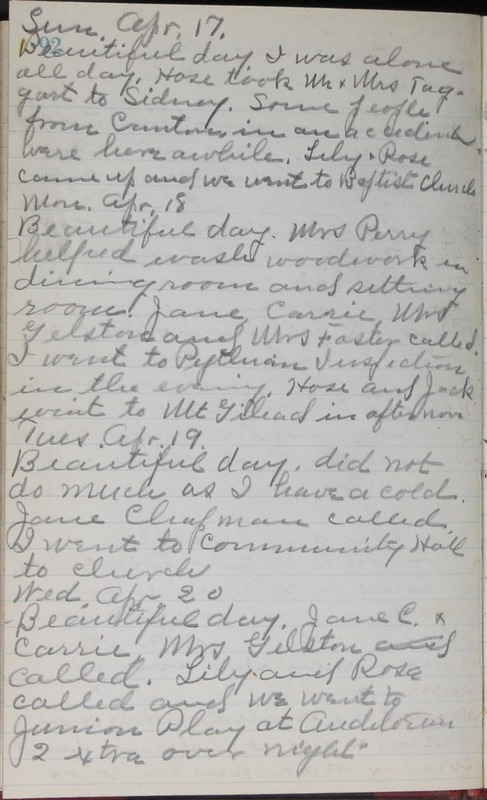 Sun. Apr. 17.
92
Beautiful day. I was alone
all day. Hose took Mr & Mrs Tag-
gart to Sidney. Some people
from Canton in an accident
were here awhile. Lily & Rose
came up and we went to Baptist Church
Mon. Apr. 18
Beautiful day. Mrs Perry
helped wash woodwork in
dining room and sitting
room. Jane, Carrie, Mrs
Gelston and Mrs Foster called.
I went to Pythian Inspection
in the evening. Hose and Jack
went to Mt Gilead in afternoon
Tues. Apr. 19.
Beautiful day. did not
do much as I have a cold.
Jane Chapman called.
I went to Community Hall
to church
Wed. Apr. 20
Beautiful day. Jane C. &
Carrie, Mrs Gelston and
called. Lily and Rose
called and we went to
Junior Play at Auditorium
2 xtra over night